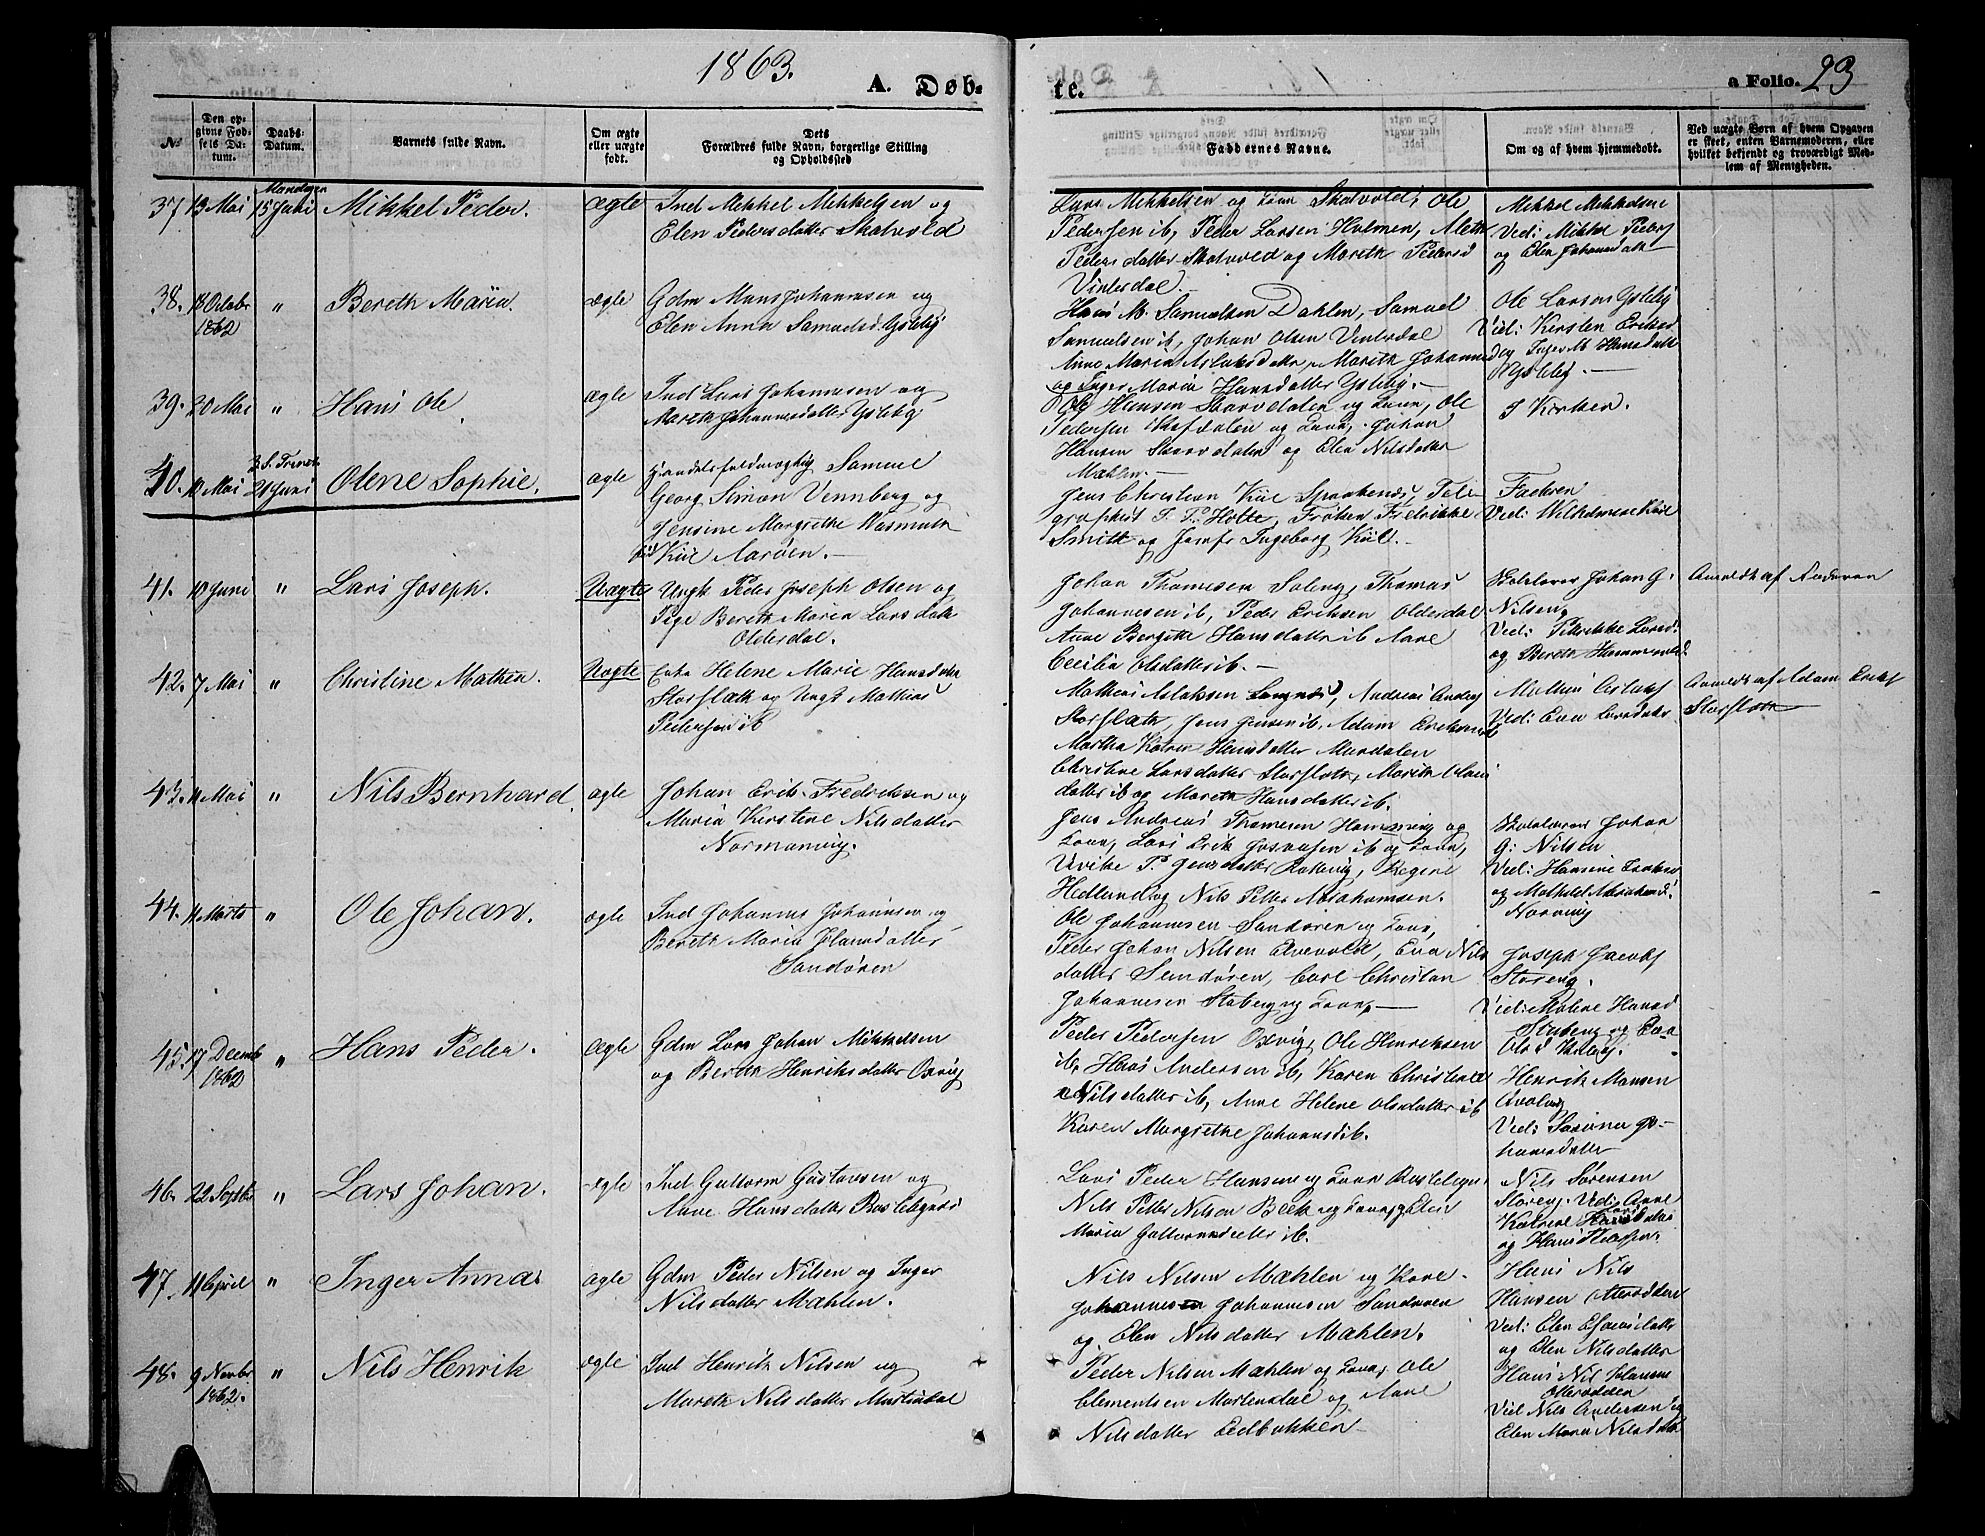 1863.
A. Døb-
te.
a Folio. 23
No
Den op-
givne Fød-
sels Da-
tum.
Daabs-
Datum.
Barnets fulde Navn.
Om ægte
eller uægte
født.
Dets
Forældres fulde Navn, borgerlige Stilling
og Opholdssted
Faddernes Navne.
Om og af hvem hjemmedøbt.
Ved uægte Børn af hvem Opgaven
er skeet, enten Barnemoderen, eller
hvilket bekjendt og troværdigt Med-
lem af Menigheden.
37 13 Mai Mandagen 15 Juni Mikkel Peder. ægte
Ind Mikkel Mikkelsen og
Elen Pedersdatter Skatvold
Lars Mikkelsen og Kone Skatvold, Ole
Pedersen ib, Peder Larsen Holmen, Aleth
Pedersdatter Skatvold og Mareth Pedersd
Vinterdal.
Mikkel Mikkelsen
Ved: Mikkel Peders
og Elen Johannesdatt
38. 18 Octobr 1862 " Bereth Maria. ægte
Gdm Mons Johannesen og
Elen Anna Samuelsd. Gsleby
Hans M. Samuelsen Dahlen, Samuel
Samuelsen ib, Johan Olsen Vinterdal
Anne Maria Aslaksdatr, Mareth Johannesd
og Inger Maria Hansdatter Gsleby.
Ole Larsen Gsleby
Ved: Kirsten Eriksd
og Inger M Hansdatt
39. 20 Mai " Hans Ole ægte
Ind Lars Johannesen og
Mareth Johannesdatter Gsleby
Ole Hansen Skarvdalen og Kone, Ole
Pedersen og Kone, Johan
Hansen Skarvdalen og Elen Nilsdatter
Mæhlen.
I Kirken.
40. 10 Mai 3 S. Trinit. 21 Juni Olene Sophie. ægte
Handelsfuldmægtig Samuel
Georg Simon Vennberg og
Jensine Margrethe Wasmuth
fød Kiil Aarøen.
Jens Christian Kiil Spaakenæs, Tele
graphist J. P. Holte, Frøken Fredrikke
Smith og Jomfr Ingeborg Kiil.
Faderen
Ved: Wilhelmine Kiil
41. 10 Juni " Lars Joseph. Uægte
Ungk Peder Joseph Olsen og
Pige Bereth Maria Larsdatt
Olderdal.
Johan Thomesen Soleng, Thomas
Johannesen ib, Peder Eriksen Olderdal
Anne Bergithe Hansdatter ib Anne
Cecilia Olsdatter ib.
Skolelærer Johan G.
Nilsen,
Ved: Petrikke Larsd:
og Bereth
Anmeldt af Faderen
42. 7 Mai " Christine Mathea. Uægte
Enke Helene Marie Hansdatr
Storslæth og Ungk Mathias
Pedersen ib
Mathias Aslaksen Langnæs, Andreas Anders
Storslæth, Jens Jensen ib, Adam Eriksen ib
Martha Katrin Hansdatter Mandalen
Christine Larsdatter Storslæth, Mareth Olais
datter ib og Mareth Hansdatter ib.
Mathias Aslaks
Ved: Eva Larsdatr
Anmeldt af Adam Eriks
Storslæth
43. 11 Mai " Nils Bernhard. ægte
Johan Erik Fredriksen og
Maria Kirstine Nilsdatter
Normanvig.
Jens Andreas Thomesen Hamnvig og
Kone, Lars Erik Josvasen ib og Kone,
Ulrike P. Jensdatter Rotsvig, Regine
Hedlund og Nils Petter Abrahamsen.
Skolelærer Johan
G: Nilsen
Ved: Hansine
og Mathilde Abrahamsd:
Norvvig
44. 11 Marts " Ole Johan. ægte
Ind Johannes Johannesen og
Bereth Maria Hansdatter
Sandøren
Ole Johannesen Sandøren og Kone,
Peder Johan Nilsen Elvevold, Eva Nils
datter Sandøren, Carl Christian
Johannesen Staberg og Kone,
Joseph Jacobs
Storeng.
Ved: Malene Hansd
Staberg og Eva
Olsd
45. 17 Decemb 1862 " Hans Peder. ægte
Gdm Lars Johan Mikkelsen
og Bereth Henriksdatter Oxvig
Peder Pedersen Oxvig, Ole Henriksen
ib, Hans Andersen ib, Karen Christine
Nilsdatter ib, Anne Helene Olsdatter ib
Karen Margrethe Johannsd ib.
Henrik Monsen
Ved: Jo-
hannesdatter
46. 22 Septbr " Lars Johan. ægte
Ind Guttorm Gustavsen og
Anne Hansdatter Rastebynæs
Lars Peder Hansen og Kone Rastebynæs
Nils Petter Nilsen Bech og Kone, Elen
Maria Guttormsdatter ib.
Nils Sørensen
Storeng. Ved: Anne
Katrine Larsdatter
og Hans
47. 11 April " Inger Anna. ægte
Gdm Peder Nilsen og Inger
Nilsdatter Mæhlen.
Nils Nilsen Mæhlen og Kone
Johannes Johannesen Sandøren
og Elen Nilsdatter Mæhlen.
Hans Nils
Hansen Olterodden
Ved: Elen Esaiasdatter
og Elen Nilsdatter
48. 9 Novbr 1862. " Nils Henrik ægte
Ind Henrik Nilsen og
Mareth Nilsdatter Mortendal
Peder Nilsen Mæhlen og Kone, Ole
Clementsen Mortendal og Anne
Nilsdatter Eidbakken
Hans Nils Hansen
Olterodden
Ved Nils Andersen og
Elen Maria Nilsdatt